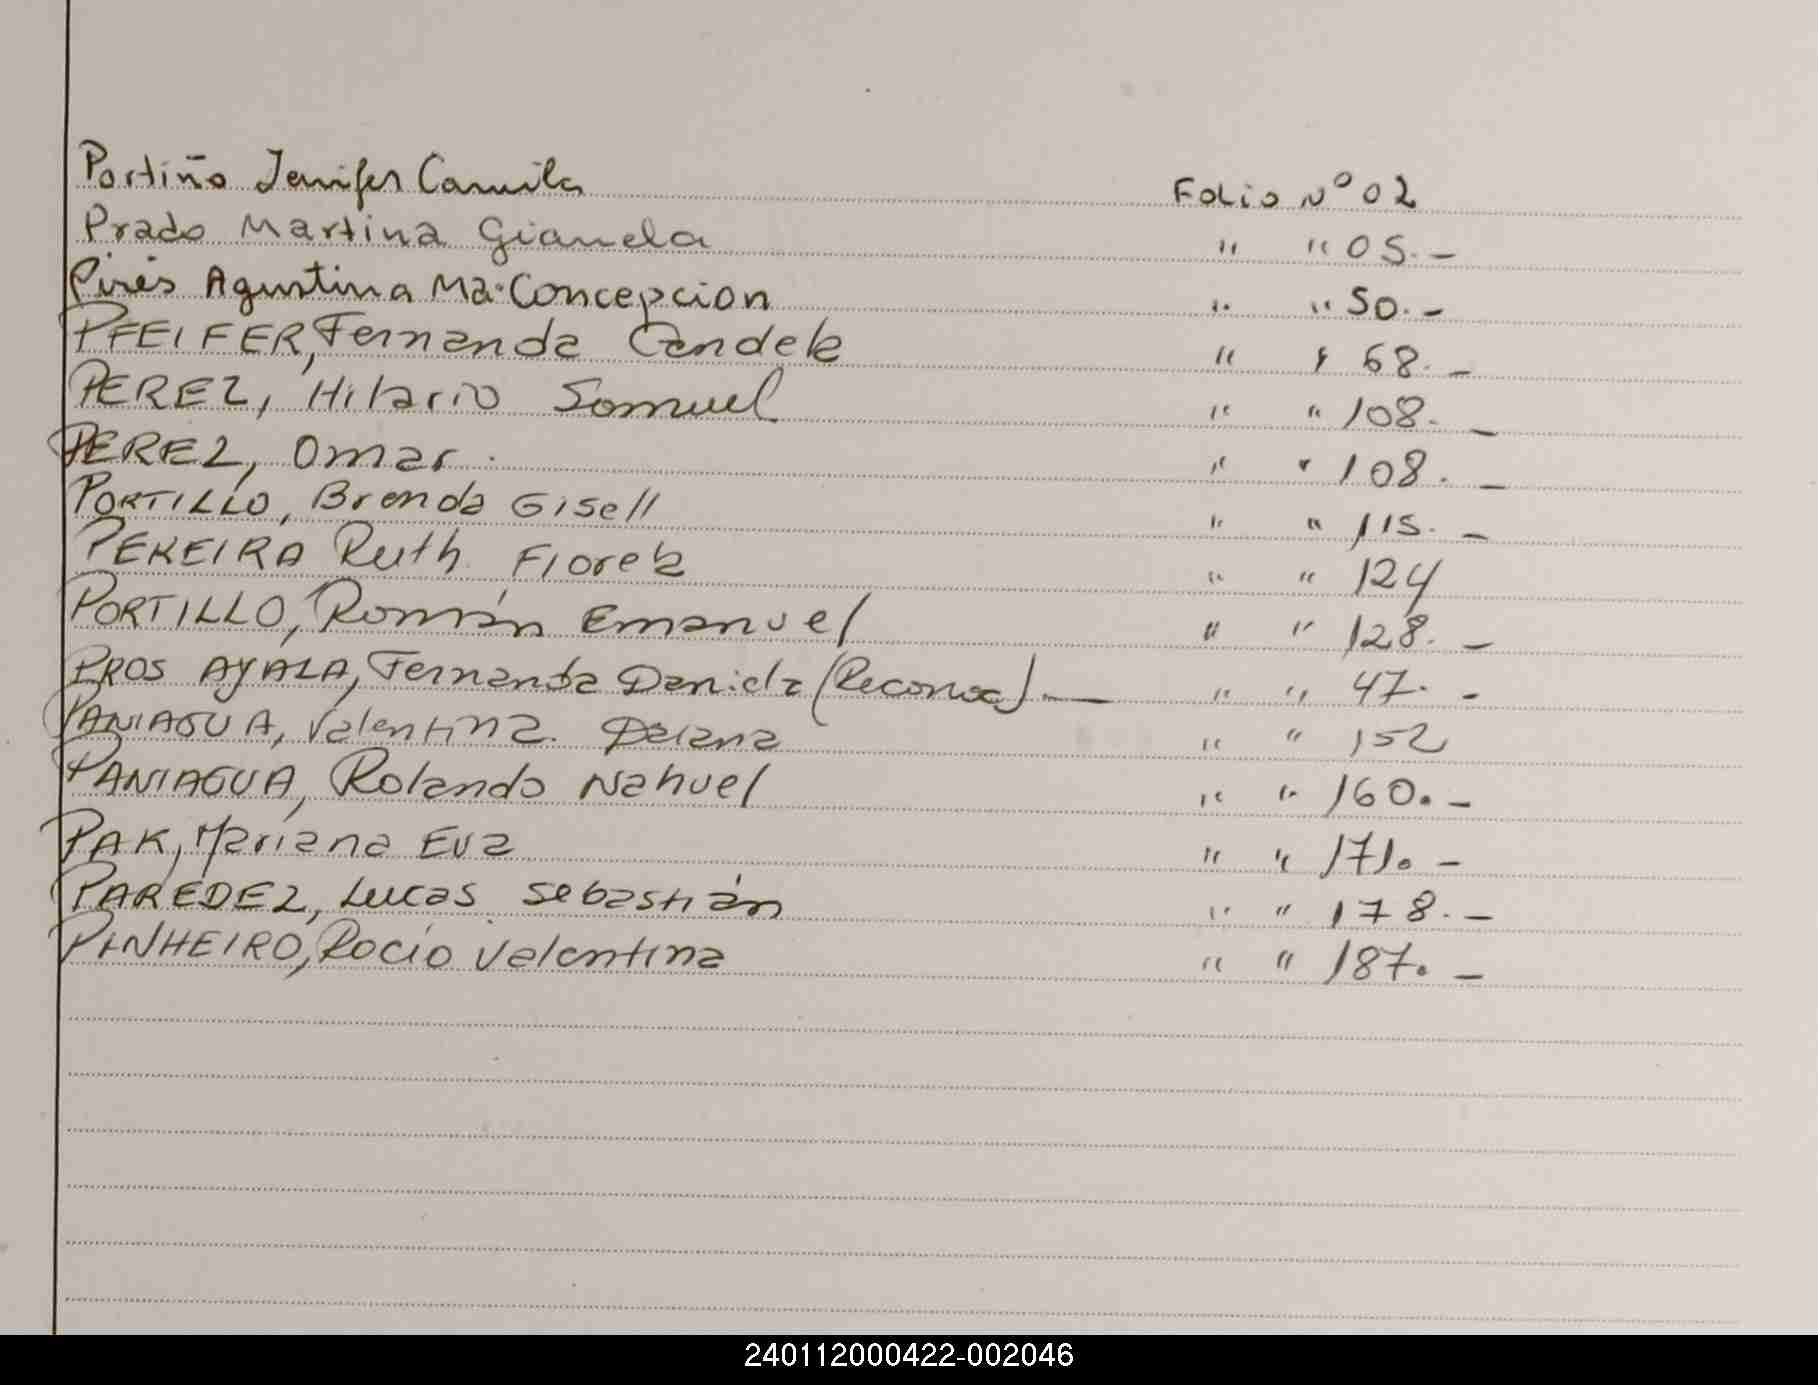 Portiño Jenifer Camila Folio Nº 02
Prado Martina Gianela " " 05.-
Pires Agustina Ma. Concepcion " " 50.-
PFEIFER, Fernanda Candela " " 68.-
PEREZ, Hilario Samuel " " 108.-
PEREZ, Omar. " " 108.-
PORTILLO, Brenda Gisell " " 115.-
PEREIRA Ruth Fiorela " " 124
PORTILLO, Román Emanuel " " 128.-
PROS AYALA, Fernanda Daniela (Reconoc) — " " 47.-
PANIAGUA, Valentina Daiana " " 152
PANIAGUA, Rolando Nahuel " " 160.-
PAK, Mariana Eva " " 171.-
PAREDEZ, Lucas Sebastián " " 178.-
PINHEIRO, Rocío Valentina " " 187.-
240112000422-002046